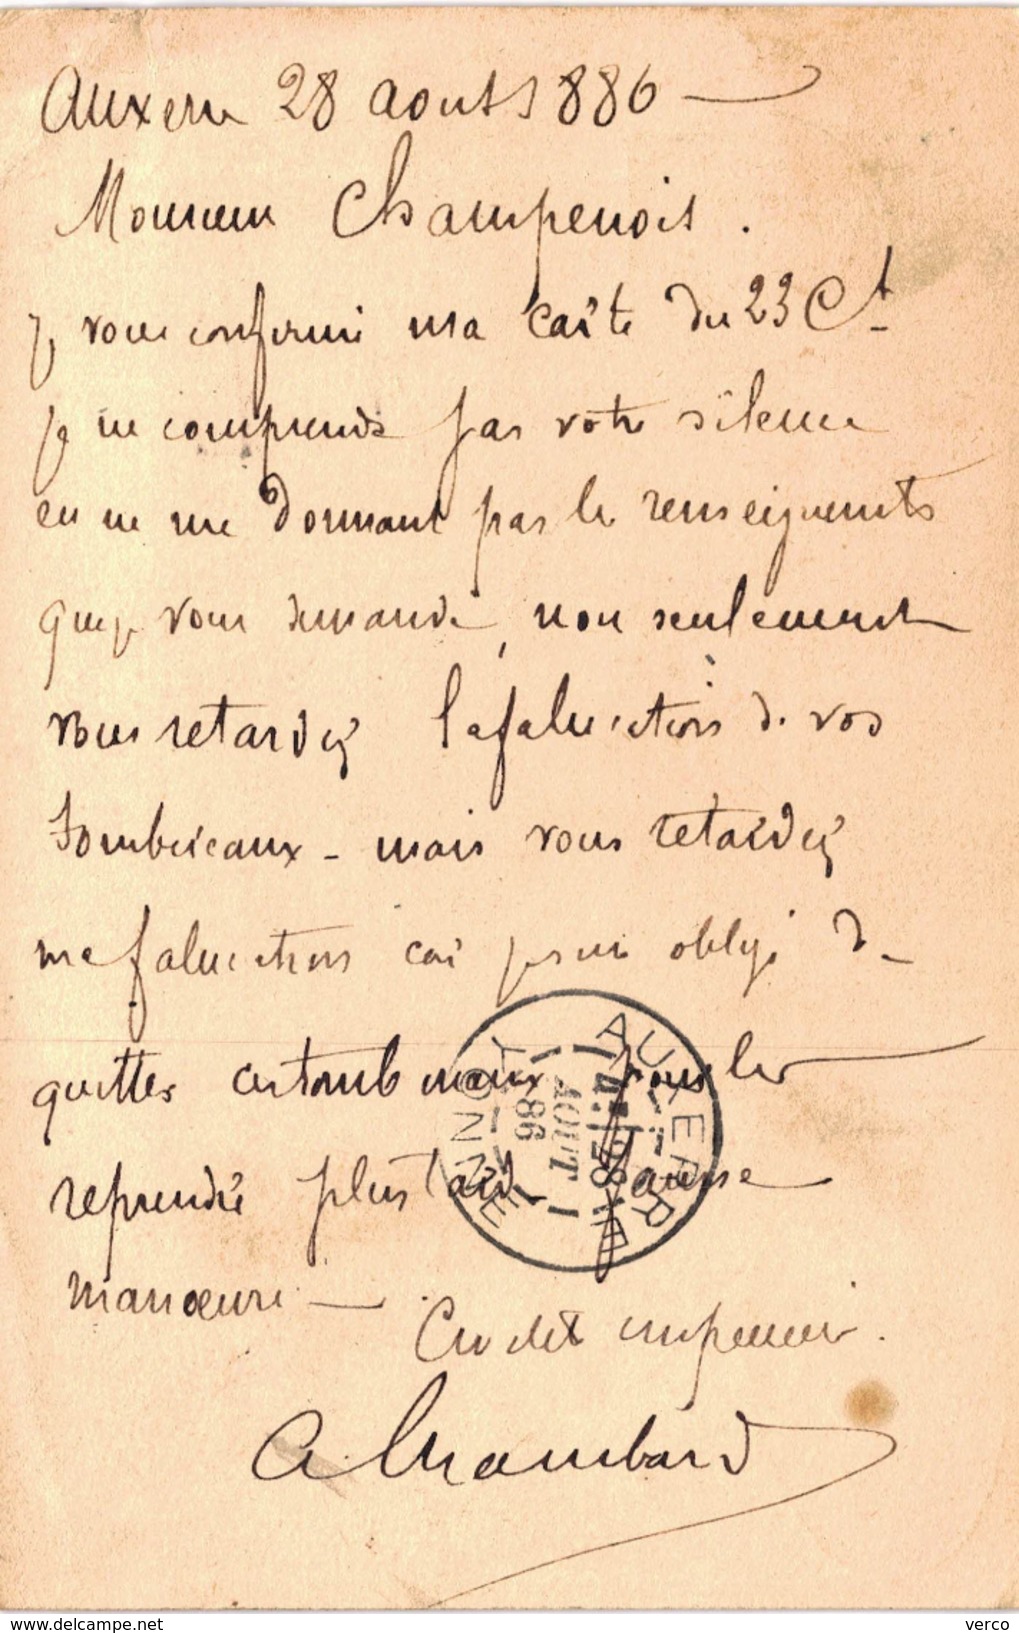 Auxerre 28 Aout 1886 —
Monsieur Champenois.
Je vous confirme ma carte du 23 Ct
je ne comprends pas votre silence
en ne me donnant pas le renseignements
que je vous demande, non seulement
vous retardez la fabrication de vos
tombereaux - mais vous retardez
ma fabrication car je suis obligé de
quitter ces tombereaux pour les
reprendre plus tard fausse
manoeuvre —
AUXERRE
YONNE
AOUT
86
A Chambard